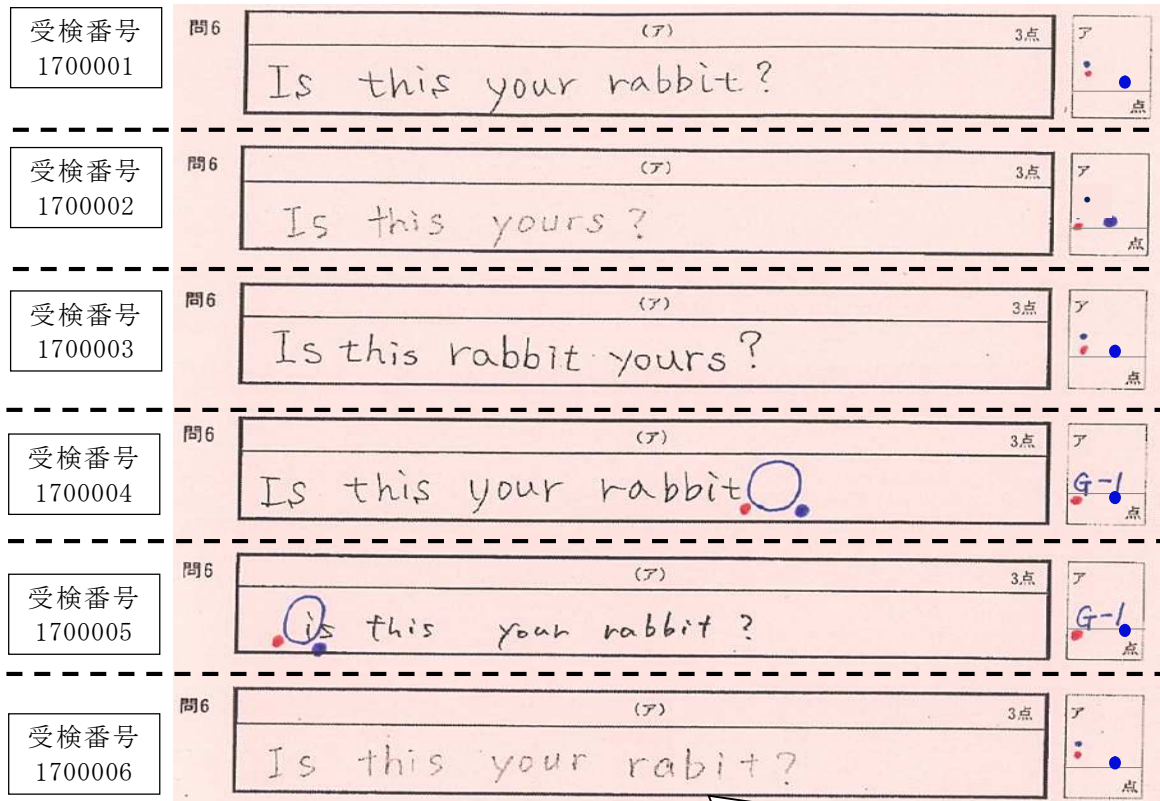 受検番号
1700001
問6
(ア)
3点
ア
Is this your rabbit?
点
受検番号
1700002
問6
(ア)
3点
ア
Is this yours?
点
受検番号
1700003
問6
(ア)
3点
ア
Is this rabbit yours?
点
受検番号
1700004
問6
(ア)
3点
ア
Is this your rabbit
G-1
点
受検番号
1700005
問6
(ア)
3点
ア
is this your rabbit?
G-1
点
受検番号
1700006
問6
(ア)
3点
ア
Is this your rabit?
点